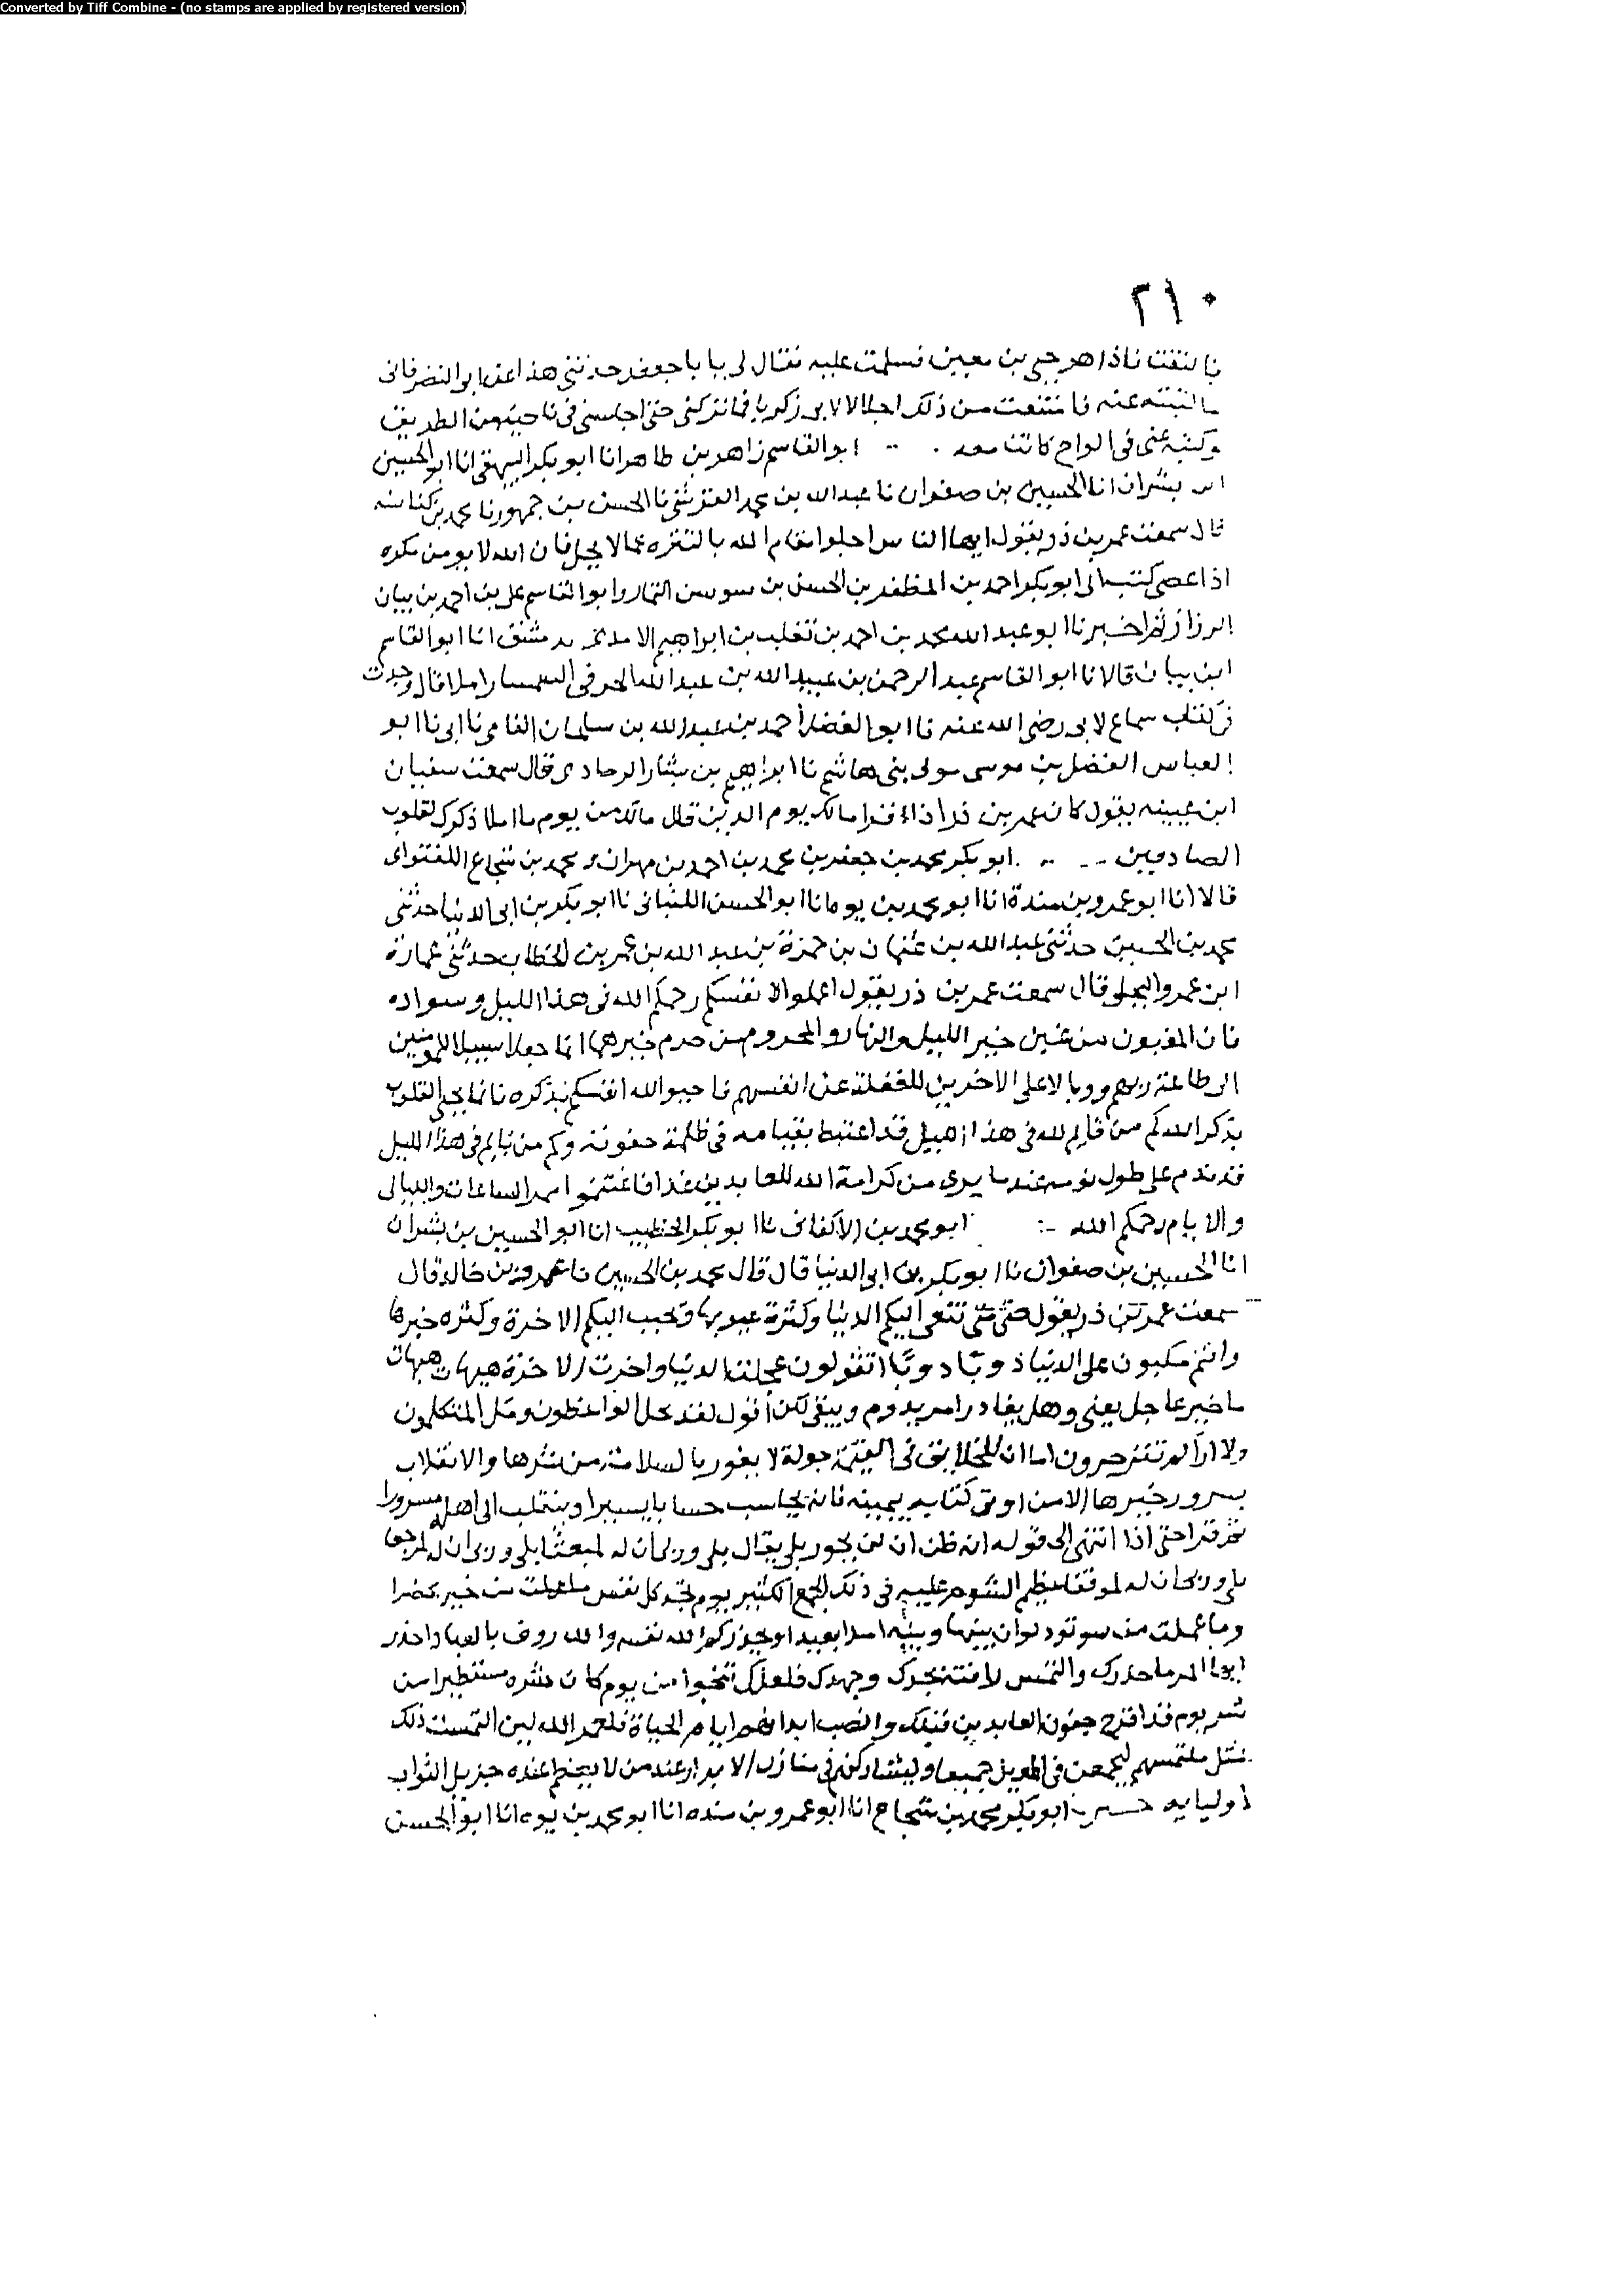 Converted by Tiff Combine - (no stamps are applied by registered version)
٢١٠
فالتفت فاذا هو يحيى بن معين فسلمت عليه فقال لى يا با جعفر حدثنى هذا اعن ابو النضر فانى
ما كتبته عنه فامتنعت من ذلك اجلالا لابى زكريا فما تركنى حتى اجلسنى فى ناحية من الطريق
وكتبه عنى فى الواح كانت معه . ابو القاسم زاهر بن طاهر انا ابو بكر البيهقى انا ابو الحسين
ابن بشران انا الحسين بن صفوان نا عبد الله بن محمد القرشى نا الحسن بن جمهور نا محمد بن كناسه
قال سمعت عمر بن ذر يقول ايها الناس اجلوا مقام الله بالتنزه عما لا يحل فان الله لا يومن مكره
اذا عصى كتب الى ابو بكر احمد بن المظفر بن الحسن بن سوسن التمار وابو القاسم على بن احمد بن بيان
الرزاز ثم اخبرنا ابو عبد الله محمد بن احمد بن تغلب بن ابراهيم الامدى بدمشق انا ابو القاسم
ابن بيان قالا نا ابو القاسم عبد الرحمن بن عبيد الله بن عبد الله الحرفى السمسار املا قال وجدت
فى كتاب سماع لابى رضى الله عنه نا ابو الفضل احمد بن عبد الله بن سلمان الفامى نا ابى نا ابو
العباس الفضل بن موسى مولى بنى هاشم نا ابراهيم بن بشار الرمادى قال سمعت سفيان
ابن عيينه يقول كان عمر بن ذر اذا قرا مالك يوم الدين قال مالك من يوم ما املا ذكرك لقلوب
الصادقين .. ابو بكر محمد بن جعفر بن محمد بن احمد بن مهران ومحمد بن شجاع اللفتوانى
قالا انا ابو عمرو بن مندة انا ابو محمد بن يوه انا ابو الحسن اللنبانى نا ابو بكر بن ابى الدنيا حدثنى
محمد بن الحسين حدثنى عبد الله بن عثمان بن حمزة بن عبد الله بن عمر بن الخطاب حدثنى عمارة
ابن عمرو البجلى قال سمعت عمر بن ذر يقول اعملوا لانفسكم رحمكم الله فى هذا الليل وسواده
فان المغبون من غبن خير الليل والنهار والمحروم من حرم خيرهما انما جعلا سبيلا للمومنين
الى طاعة ربهم ووبالا على الاخرين للغفلة عن انفسهم فاحيوا لله انفسكم بذكره فانما يحيى القلوب
بذكر الله كم من قايم لله فى هذا الليل قد اغتبط بقيامه فى ظلمة حفرته وكم من نايم فى هذا الليل
قد ندم على طول نومه عندما يرى من كرامة الله للعابدين غدا فاغتنموا ممر الساعات والليالى
والايام رحمكم الله :- ابو محمد بن الاكفانى نا ابو بكر الخطيب انا ابو الحسين بن بشران
انا الحسين بن صفوان نا ابو بكر بن ابى الدنيا قال قال محمد بن الحسين نا عمرو بن خالد قال
سمعت عمر بن ذر يقول حتى متى تنعى اليكم الدنيا وكثرة عيوبها وتحبب اليكم الاخرة وكثره خيرها
وانتم مكبون على الدنيا ذوبا دوبا اتقولون عجلت الدنيا واخرت الاخرة هيهات هيهات
ما خير عاجل يفنى وهل يغادر امر يدوم ويبقى لكن اقول لقد مل الواعظون ومل المتكلمون
ولا اراكم تنزجرون اما ان للخلايق فى القيمة جولة لا يفوز بالسلامة من شرها والانقلاب
بسرور خيرها الا من اوتى كتابه بيمينه فانه يحاسب حسابا يسيرا وينقلب الى اهله مسرورا
ثم قرا حتى اذا انتهى الى قوله انه ظن ان لن يحور بلى يقال بلى وربى ان له لمبعثا بلى وربى ان له لمرجعا
بلى وربى ان له لموقفا عليه فى ذلك الجمع الكثير يوم تجد كل نفس ما عملت من خير محضرا
وما عملت من سو تود لو ان بينها وبينه امدا بعيدا ويحذركم الله نفسه والله روف بالعباد احذر
ايها المر ما حذرك والتمس لا منته بجدك وجهدك فلعلك تنجوا من يوم كان شره مستطيرا من
شر يوم قد اقرح جفون العابدين قبلك وانصب ابدانهم ايام الحياة فلعمر الله لين التمست ذلك
مثل ملتمسهم ليجمعن فى المويل جميعا وليشاركنهم فى منازل الابرار عند من لا يعظم عنده جزيل الثواب
لاوليايه ابو بكر محمد بن شجاع انا ابو عمرو بن منده انا ابو محمد بن يوه انا ابو الحسن